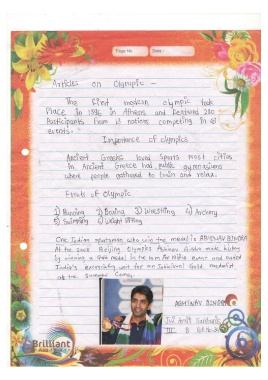 Page No. Date:
Articles on Olympic –
The first modern olympic took
Place In 1896 in Athens and featured 280
Participants from 12 nations competing in 43
events.
Importance of olympics
Ancient Greeks loved sports most cities
in Ancient Greece had public gymnasiums
where people gathered to train and relax.
Events of Olympic
1) Running 2) Boxing 3) Wrestling 4) Archery
5) Swimming 6) Weight lifting
One Indian sportsman who win the medal is ABHINAV BINDRA
At the 2008 Beijing Olympics Abhinav Bindra made history
by winning a gold medal in the 10m Air Rifle event and ended
India's wait for an Individual Gold medalist
at the Summer Games
ABHINAV BINDRA
III B
Brilliant
6